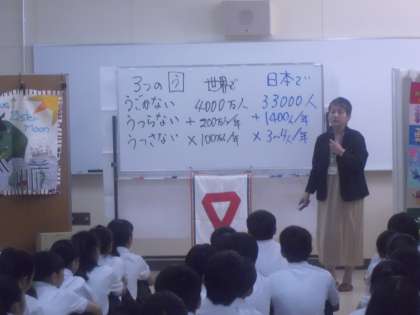 3つの う 世界で 日本で
うごかない 4000万人 33000人
うつらない + 200万人/年 + 1400人/年
うつさない × 100万人/年 × 3~4人/年
Moon